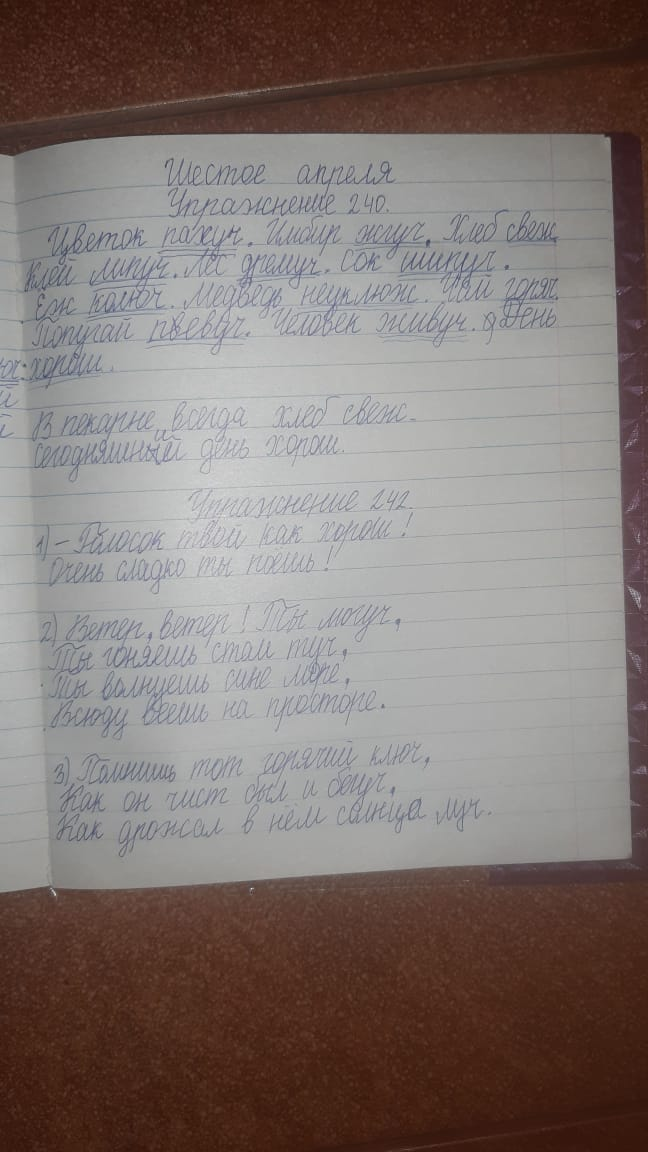 Шестое апреля
Упражнение 240.
Цветок пахуч. Имбир жгуч. Хлеб свеж.
Клей липуч. Лес дремуч. Сок шипуч.
Ёж колюч. Медведь неуклюж. Чай горяч.
Попугай певуч. Человек живуч. День
хорош.
В пекарне всегда хлеб свеж.
Сегодняшний день хорош.
Упражнение 242.
1) – Голосок твой как хорош!
Очень сладко ты поёшь!
2) Ветер, ветер! Ты могуч,
Ты гоняешь стаи туч,
Ты волнуешь сине море,
Всюду веешь на просторе.
3) Помнишь тот горячий ключ,
Как он чист был и бегуч,
Как дрожал в нём солнца луч.